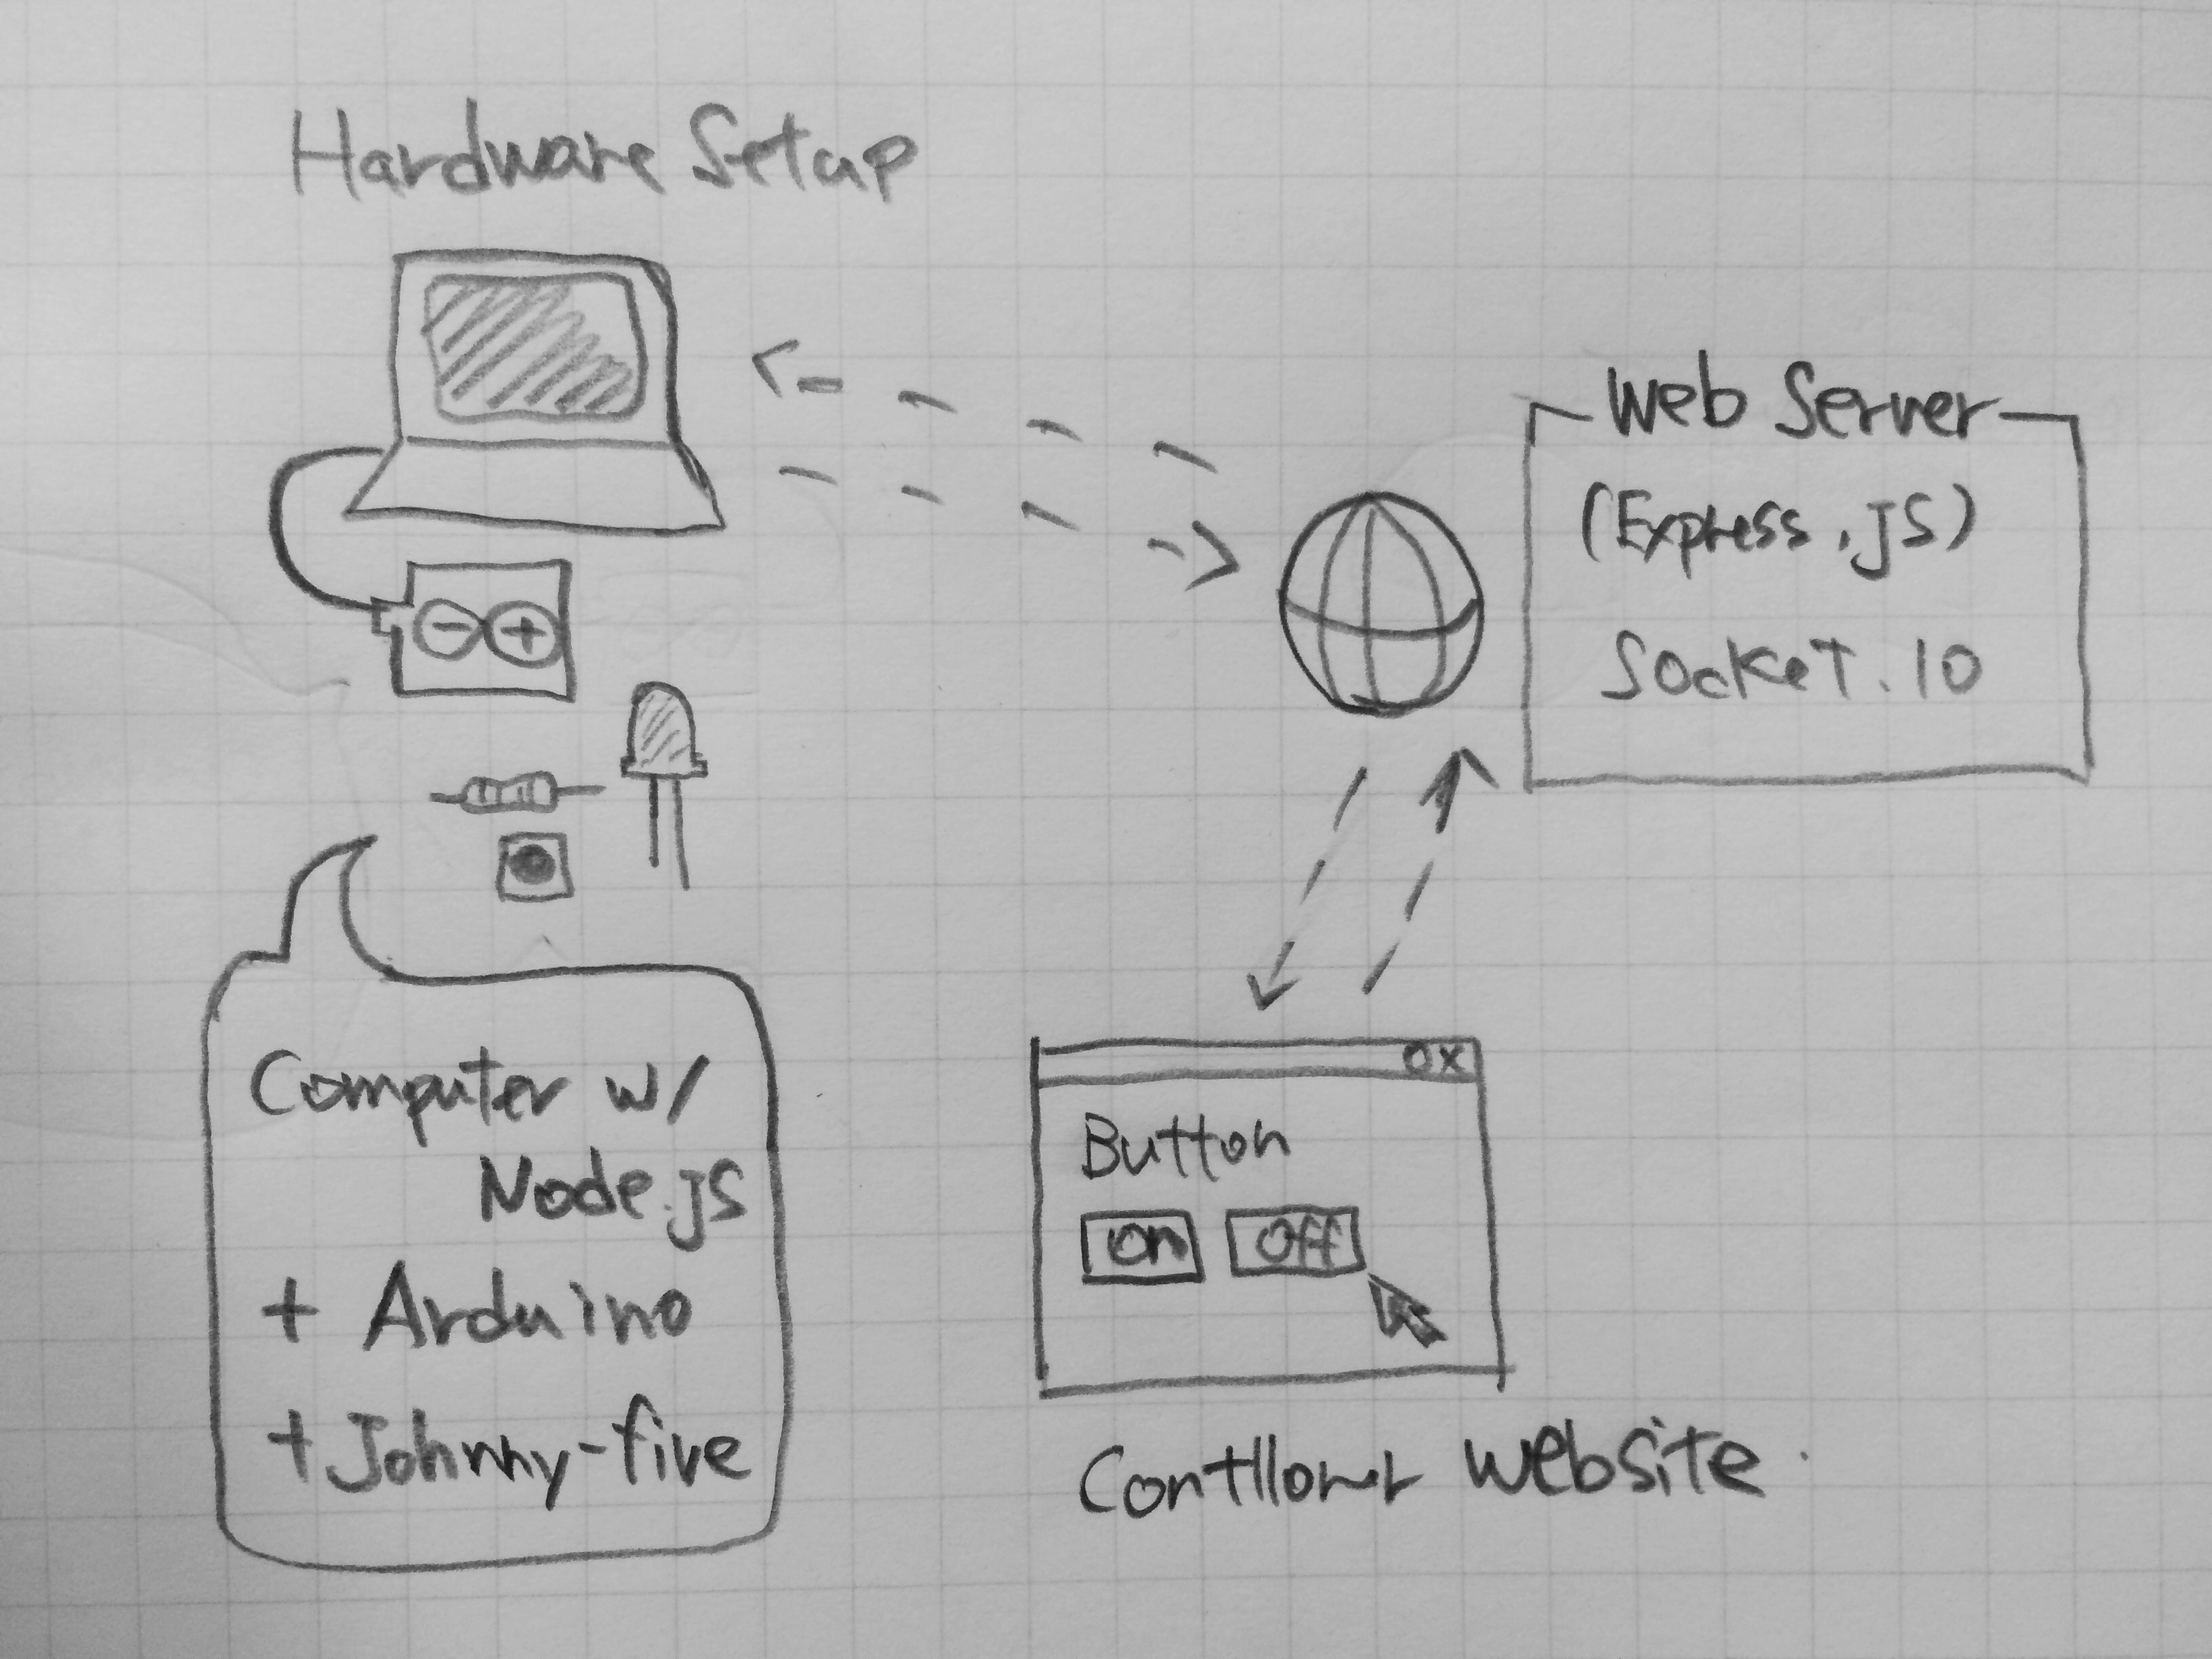 Hardware Setup
Web Server
(Express.js)
Socket.IO
Computer w/
Node.js
+ Arduino
+ Johnny-five
OX
Button
On Off
Contllowr Website